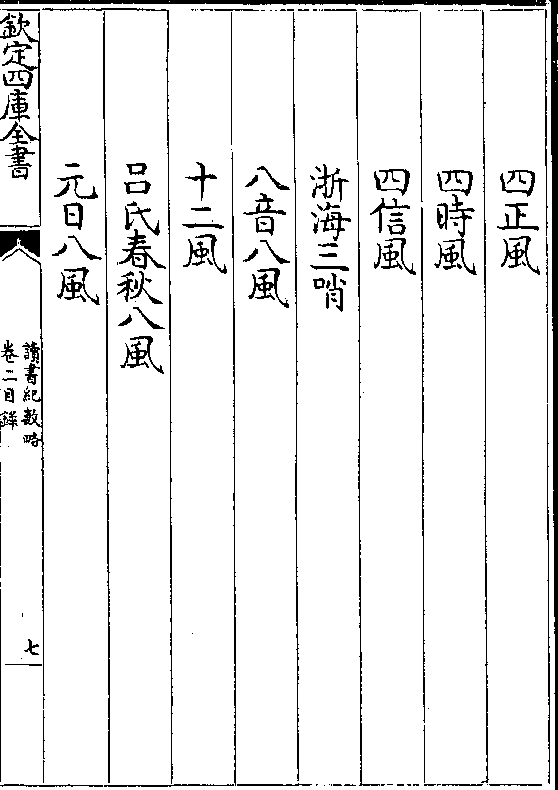 四正風
四時風
四信風
浙海三哨
八音八風
十二風
呂氏春秋八風
元日八風
欽定四庫全書
讀書紀數略
卷二目錄
七